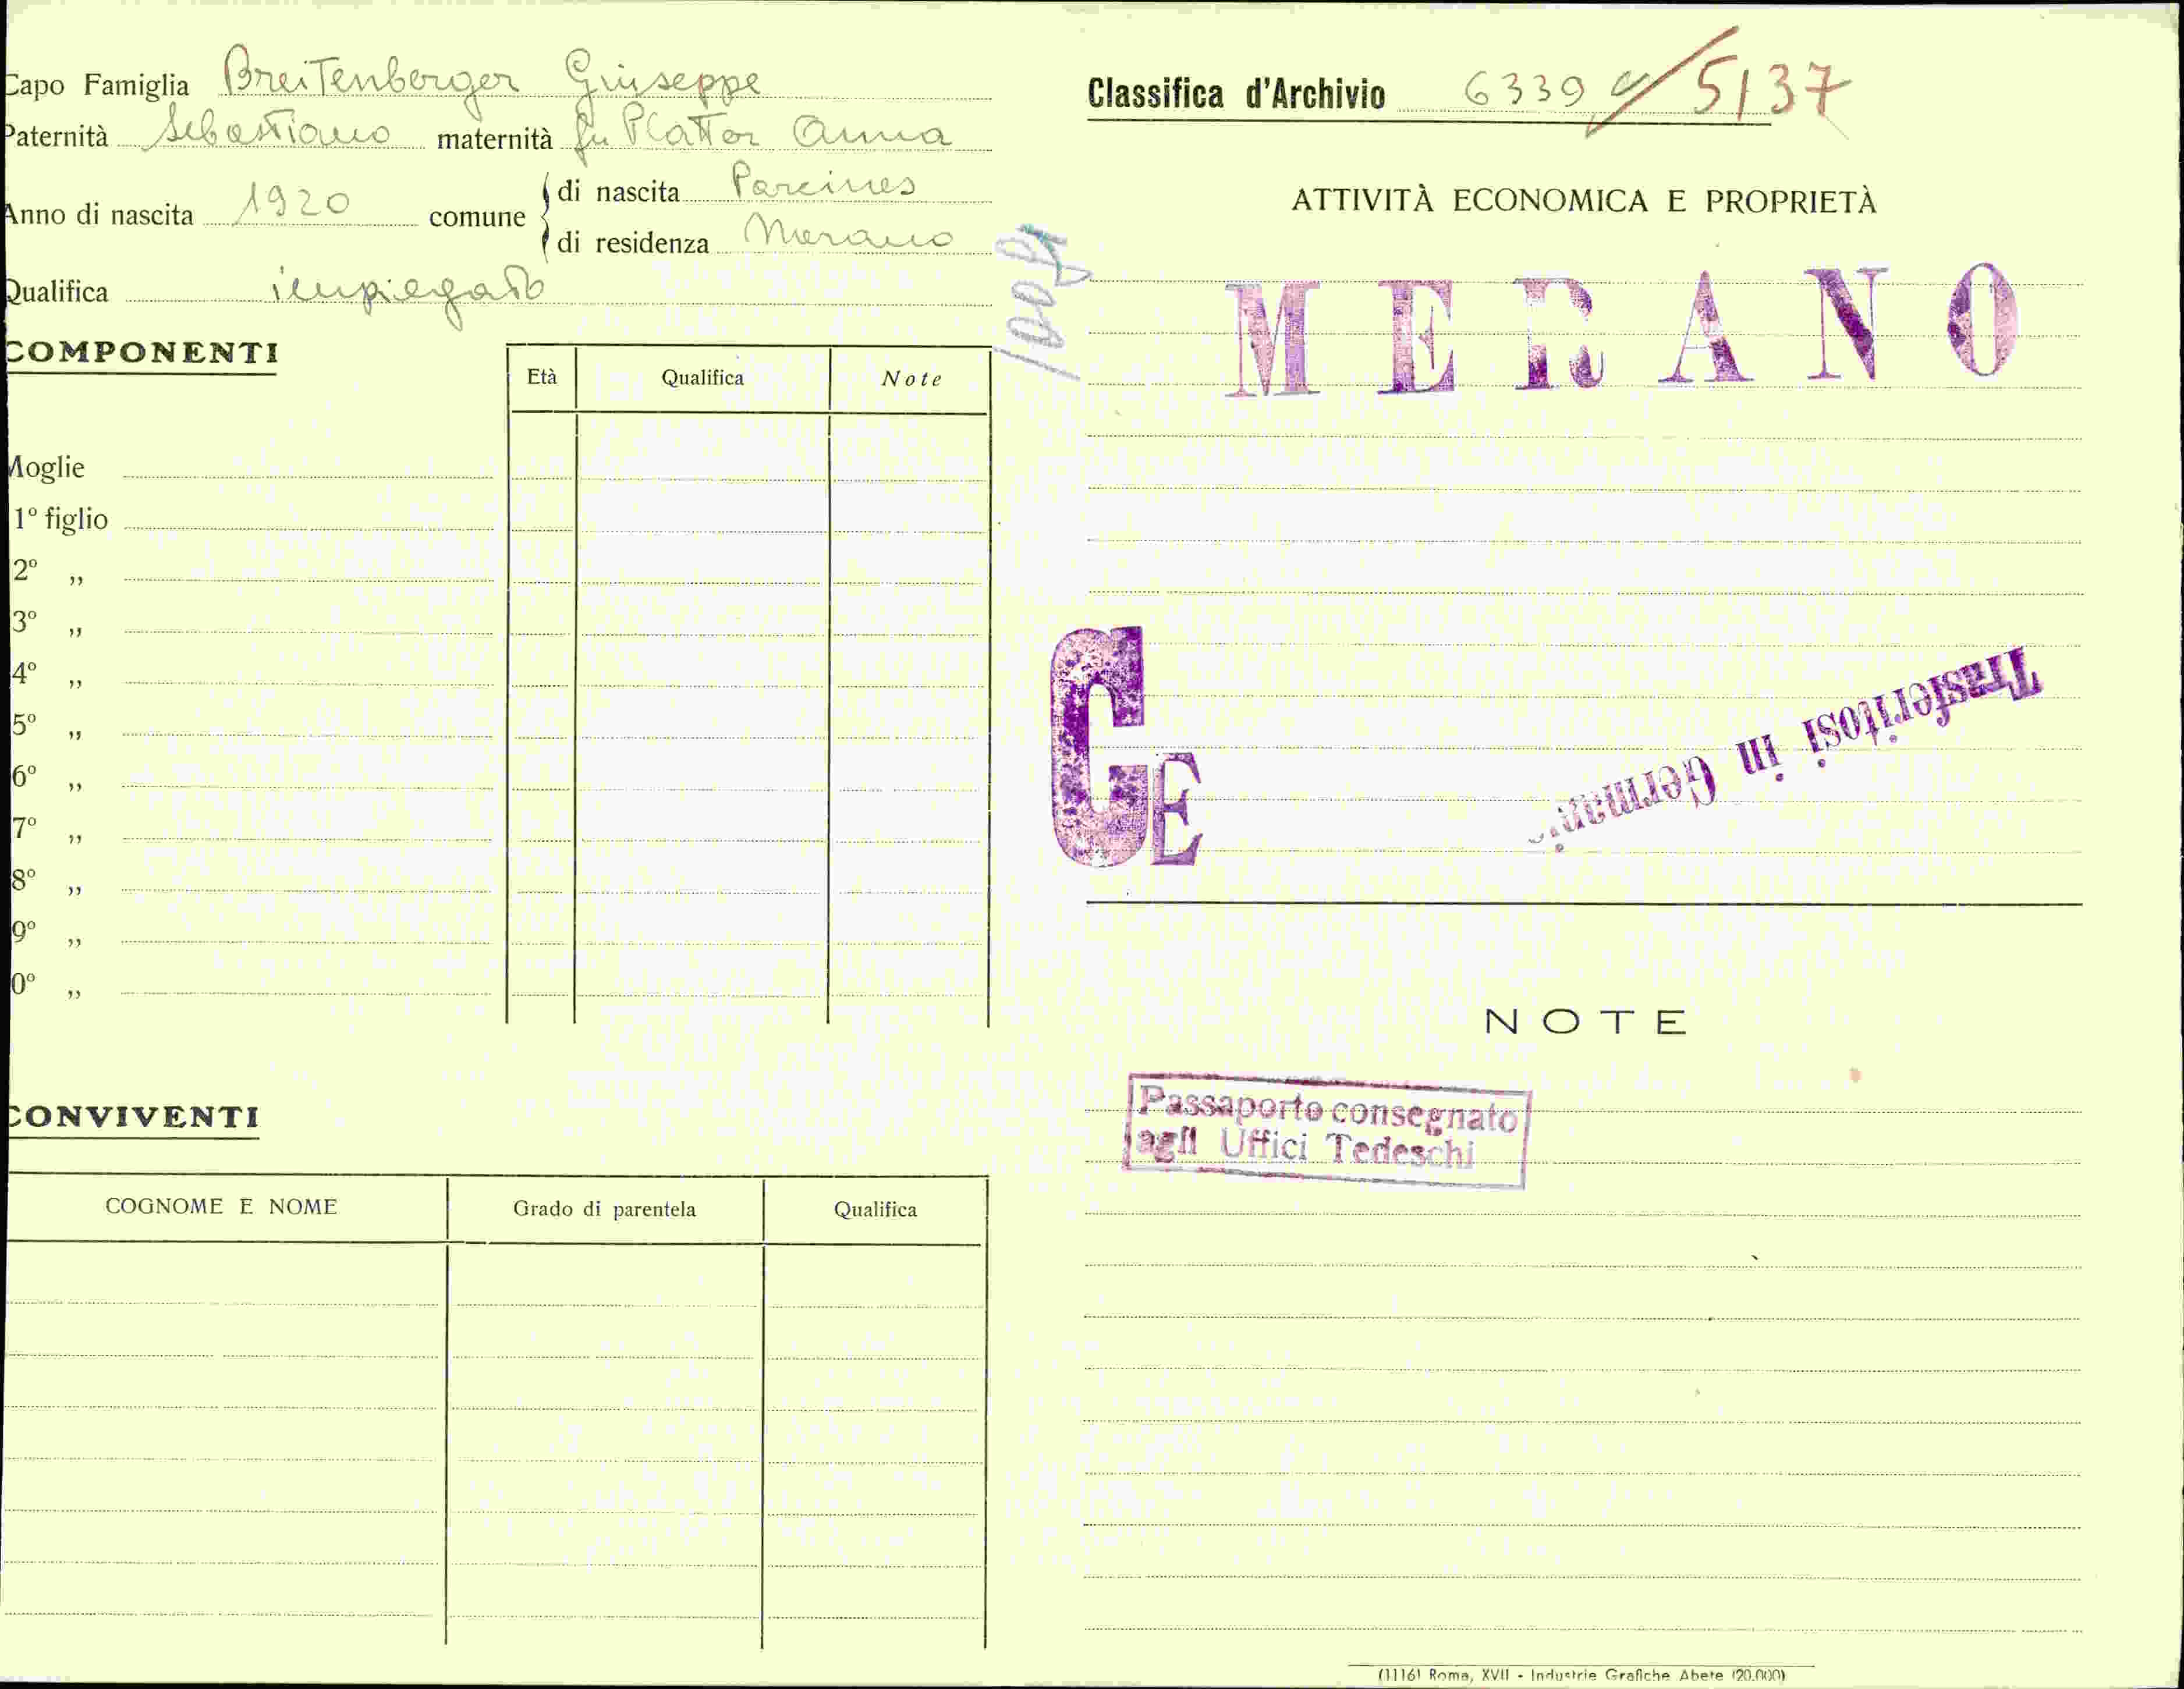 Capo Famiglia Breitenberger Giuseppe
Paternità Sebastiano maternità fu Platter Anna
Anno di nascita 1920 comune di nascita Parcines
di residenza Merano
Qualifica impiegato
COMPONENTI
Età Qualifica Note
Moglie
1º figlio
2º ,,
3º ,,
4º ,,
5º ,,
6º ,,
7º ,,
8º ,,
9º ,,
0º ,,
CONVIVENTI
COGNOME E NOME Grado di parentela Qualifica
Classifica d'Archivio 6339 / 5137
ATTIVITÀ ECONOMICA E PROPRIETÀ
MERANO
GE
Trasferitosi in Germani
NOTE
Passaporto consegnato
agli Uffici Tedeschi
(1116) Roma, XVII - Industrie Grafiche Abete (20.000)